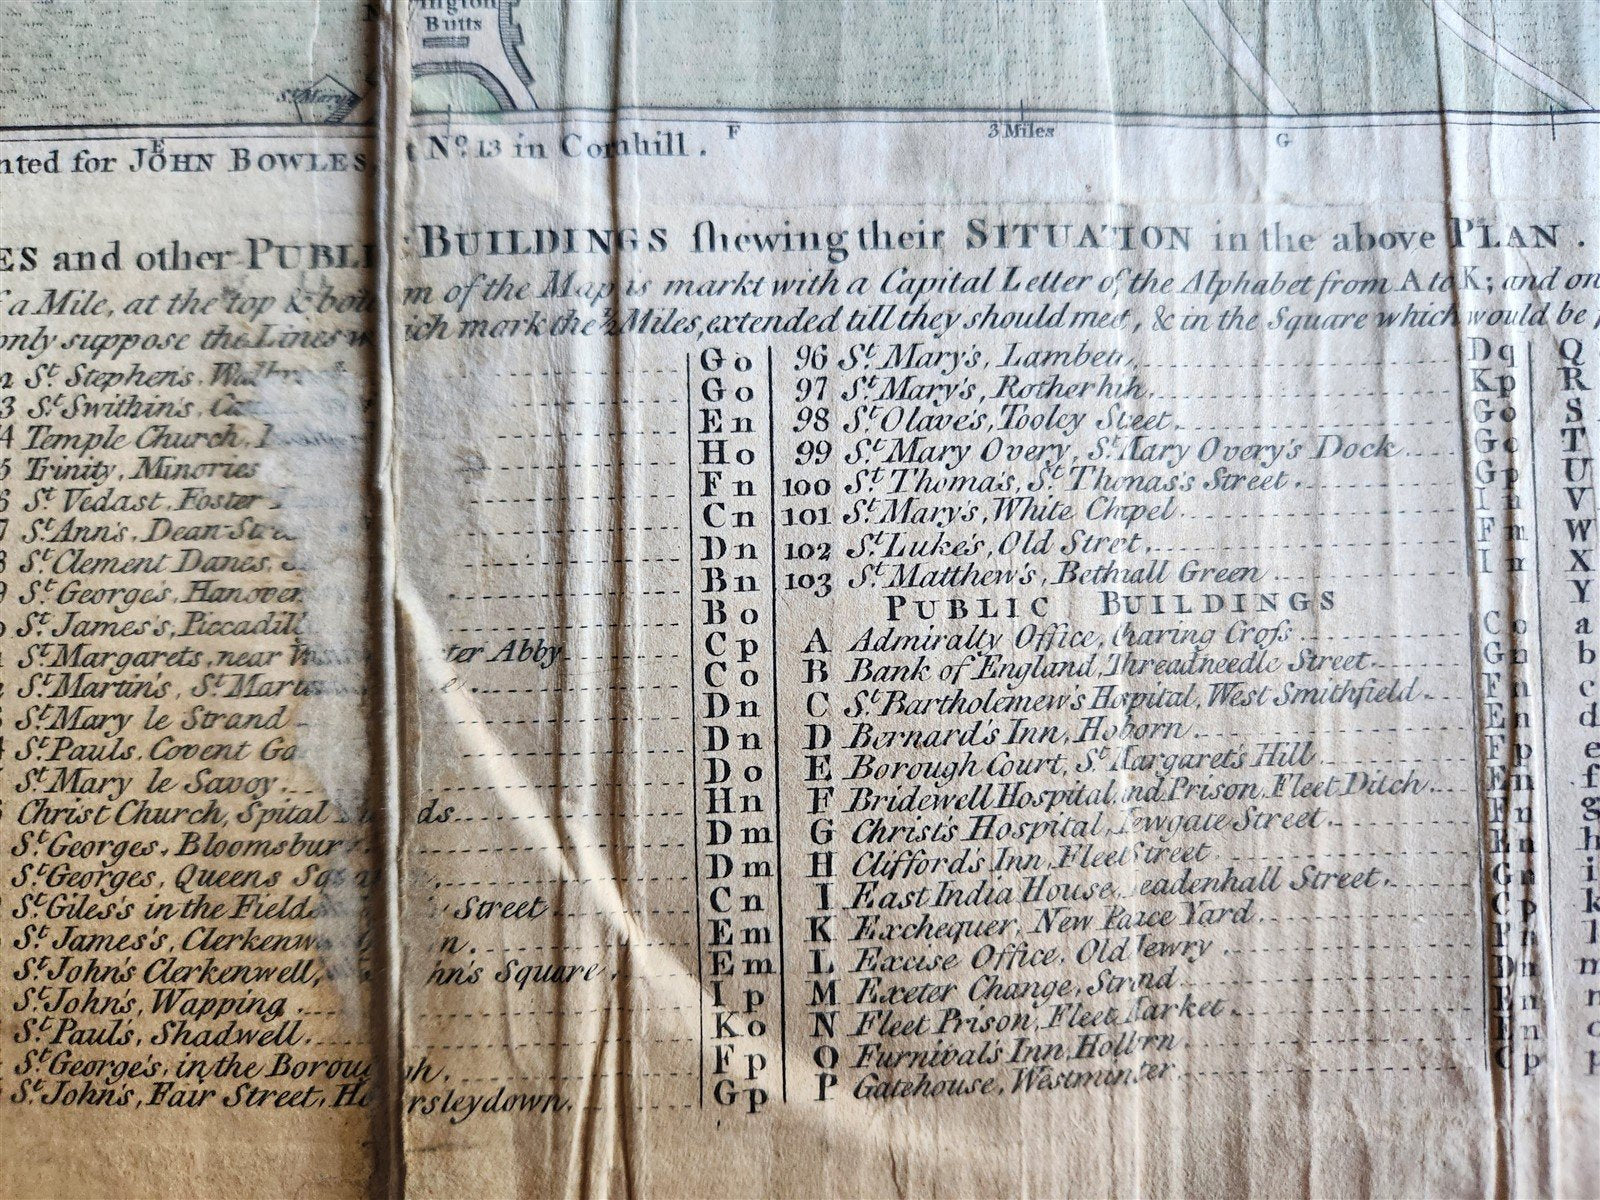 Butts
St. Mary
E
F
3 Miles
G
nted for JOHN BOWLES, No. 13 in Cornhill.
ES and other PUBLIC BUILDINGS ſhewing their SITUATION in the above PLAN.
f a Mile, at the top & bottom of the Map is markt with a Capital Letter of the Alphabet from A to K; and on
only suppose the Lines which mark the ½ Miles, extended till they should meet, & in the Square which would be
St. Stephen's, G o
3 St. Swithin's, G o
4 Temple Church, E n
5 Trinity, Minories H o
6 St. Vedast, Foster F n
7 St. Ann's, Dean C n
8 St. Clement Danes, D n
9 St. George's, Hanover B n
St. James's, Piccadill B o
St. Margarets, near ter Abby C p
St. Martin's, St. C o
St. Mary le Strand D n
St. Pauls, Covent D n
St. Mary le Savoy D o
Christ Church, Spital ds H n
St. Georges, Bloomsbury D m
St. Georges, Queens D m
St. Giles's in the Fields Street C n
St. James's, Clerkenw n. E m
St. John's Clerkenwell, hn's Square. E m
St. John's, Wapping I p
St. Pauls, Shadwell. K o
St. George's, in the Borough. F p
St. John's, Fair Street, Horsleydown. G p
96 St. Mary's, Lambeth, D q
97 St. Mary's, Rotherhith, K p
98 St. Olave's, Tooley Street. G o
99 St. Mary Overy, St. Mary Overy's Dock G o
100 St. Thomas, St. Thomas's Street. G p
101 St. Mary's, White Chapel I n
102 St. Luke's, Old Street. F m
103 St. Matthew's, Bethnall Green I m
PUBLIC BUILDINGS
A Admiralty Office, Charing Croſs C o
B Bank of England, Threadneedle Street. G n
C St. Bartholemew's Hospital, West Smithfield F n
D Bernard's Inn, Holborn E n
E Borough Court, St. Margaret's Hill F p
F Bridewell Hospital and Prison, Fleet Ditch E n
G Christ's Hospital, Newgate Street. F n
H Clifford's Inn, Fleet Street E n
I East India House, Leadenhall Street. G n
K Exchequer, New Palace Yard C p
L Excise Office, Old Jewry
M Exeter Change, Strand D n
N Fleet Prison, Fleet Market E n
O Furnival's Inn, Holborn E n
P Gatehouse, Westminster C p
Q
R
S
T
U
V
W
X
Y
a
b
c
d
e
f
g
h
i
k
l
m
n
o
p